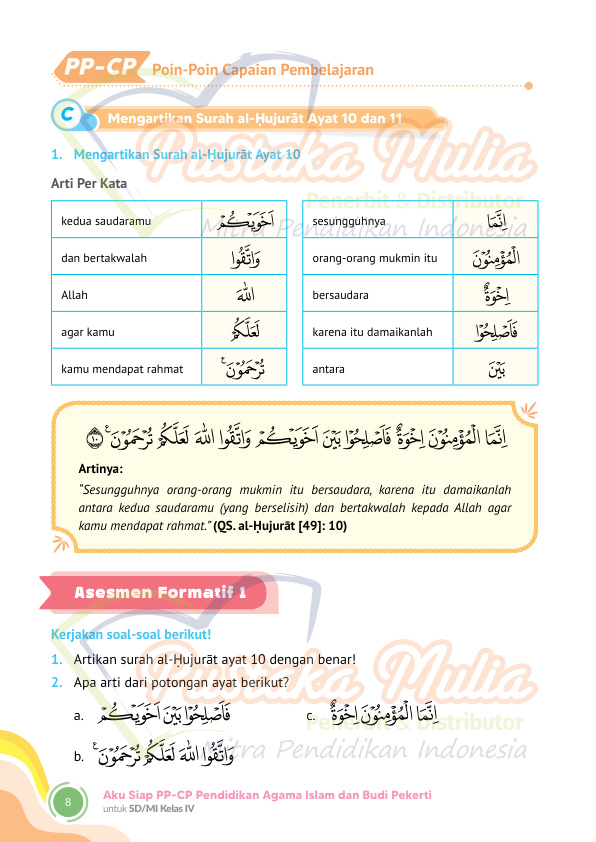 PP-CP Poin-Poin Capaian Pembelajaran
C Mengartikan Surah al-Ḥujurāt Ayat 10 dan 11
1. Mengartikan Surah al-Ḥujurāt Ayat 10
Arti Per Kata
kedua saudaramu اَخَوَيْكُمْ sesungguhnya اِنَّمَا
dan bertakwalah وَاتَّقُوا orang-orang mukmin itu الْمُؤْمِنُوْنَ
Allah اللّٰهَ bersaudara اِخْوَةٌ
agar kamu لَعَلَّكُمْ karena itu damaikanlah فَاَصْلِحُوْا
kamu mendapat rahmat تُرْحَمُوْنَ ࣖ antara بَيْنَ
اِنَّمَا الْمُؤْمِنُوْنَ اِخْوَةٌ فَاَصْلِحُوْا بَيْنَ اَخَوَيْكُمْ وَاتَّقُوا اللّٰهَ لَعَلَّكُمْ تُرْحَمُوْنَ ࣖ ١٠
Artinya:
“Sesungguhnya orang-orang mukmin itu bersaudara, karena itu damaikanlah
antara kedua saudaramu (yang berselisih) dan bertakwalah kepada Allah agar
kamu mendapat rahmat.” (QS. al-Ḥujurāt [49]: 10)
Asesmen Formatif 1
Kerjakan soal-soal berikut!
1. Artikan surah al-Ḥujurāt ayat 10 dengan benar!
2. Apa arti dari potongan ayat berikut?
a. فَاَصْلِحُوْا بَيْنَ اَخَوَيْكُمْ c. اِنَّمَا الْمُؤْمِنُوْنَ اِخْوَةٌ
b. وَاتَّقُوا اللّٰهَ لَعَلَّكُمْ تُرْحَمُوْنَ ࣖ
8 Aku Siap PP-CP Pendidikan Agama Islam dan Budi Pekerti
untuk SD/MI Kelas IV
Pustaka Mulia
Penerbit & Distributor
Mitra Pendidikan Indonesia
Pustaka Mulia
Penerbit & Distributor
Mitra Pendidikan Indonesia